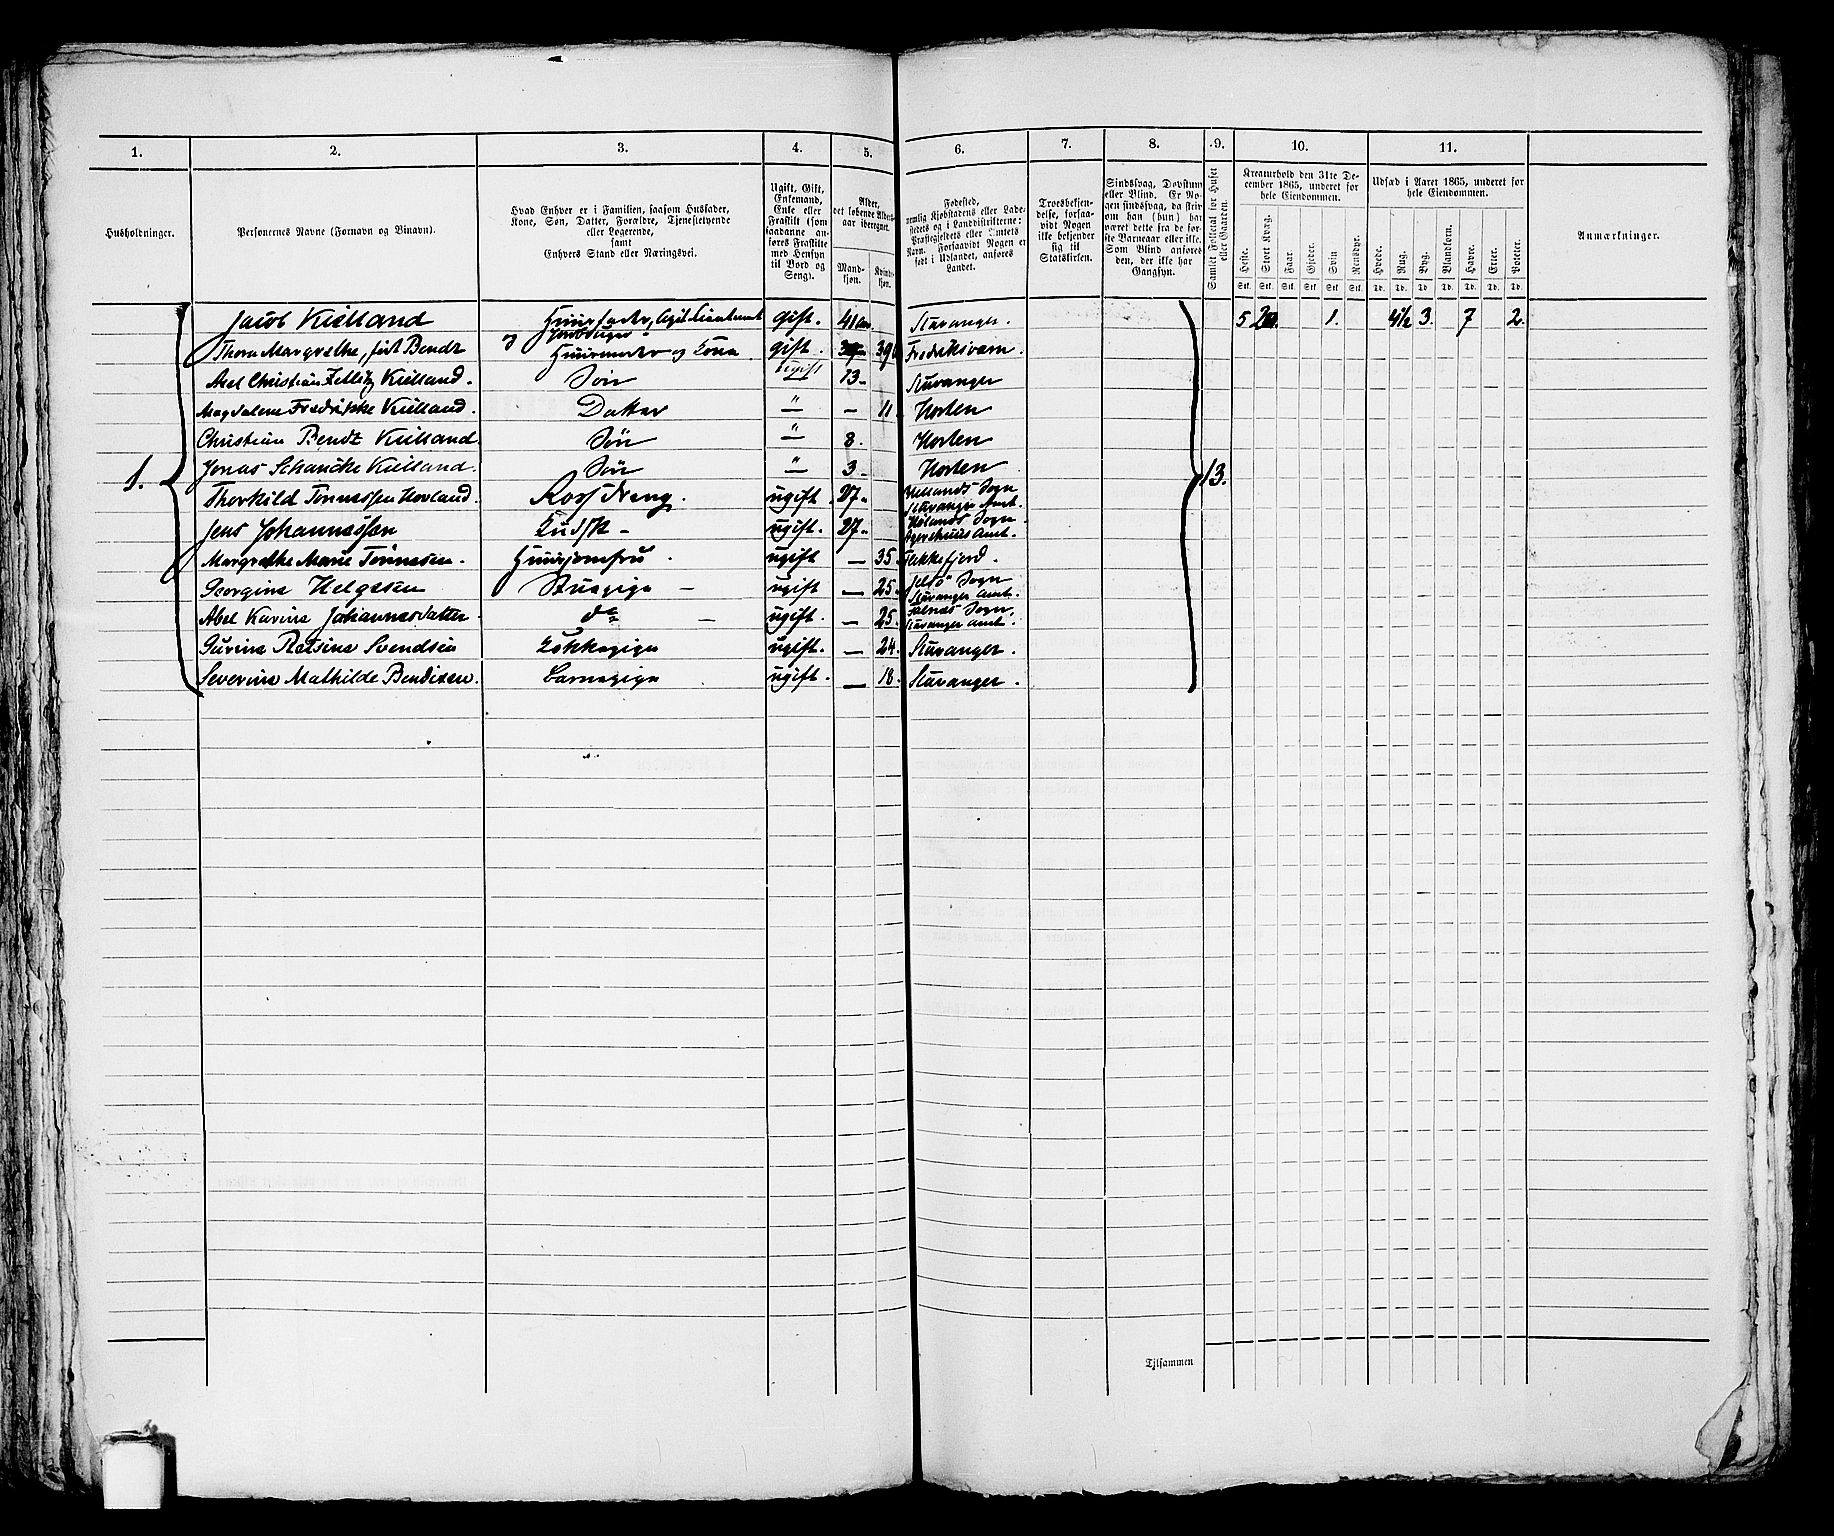 1. 2. 3. 4. 5. 6. 7. 8. 9. 10. 11.
Husholdninger.
Personernes Navne (Fornavn og Tilnavn).
Hvad Enhver er i Familien, saasom Husfader,
Kone, Søn, Datter, Forældre, Tjenestetyende
eller Logerende,
samt
Enhvers Stand eller Næringsvei.
Ugift, Gift,
Enkemand,
Enke eller
Fraskilt (som
saadanne anføres Fraskilte
med Hensyn
til Bord og
Seng).
Alder,
det løbende Alders-
aar iberegnet.
Mand-
kjøn.
Kvinde-
kjøn.
Fødested,
nemlig Kjøbstadens eller Lade-
stedets og i Landdistrikterne:
Præstegjeldets eller Amtets
Navn. Forsaavidt Nogen er
født i Udlandet, anføres
Landet.
Troesbekjen-
delse, forsaa-
vidt Nogen
ikke bekjender
sig til
Statskirken.
Sindssvag, Døvstum
eller Blind. Er No-
gen sindssvag, da skriv
om han (hun) har
været dette fra de før-
ste Barneaar eller ikke.
Som Blind anføres
den, der ikke har
Gangsyn.
Samlet Folketal for Huset
eller Gaarden.
Kreaturhold den 31te De-
cember 1865, underet for
hele Eiendommen.
Heste. Stort Kvæg. Faar. Gjeder. Svin Rensdyr.
Stk. Stk. Stk. Stk. Stk. Stk.
Udsæd i Aaret 1865, underet for
hele Eiendommen.
Hvede. Rug. Byg. Blandkorn. Havre. Erter. Poteter.
Td. Td. Td Td. Td. Td. Td.
Anmærkninger.
1. Jacob Kielland Huusfader, gift. 41 Stavanger. 13. 5 1. 4½ 3. 7 2.
Jordbruger
Thora Margrethe, født Bendz Huusmoder og Kone gift. 39 Fredriksværn.
Axel Christian Zetlitz Kielland. Søn Ugift 13 Stavanger
Magdalene Fredrikke Kielland. Datter " — 11 Horten
Christian Bendz Kielland. Søn " 8. Horten
Jonas Schancke Kielland. Søn " 3 Horten
Thorkild Tønnessen Hovland. ugift. 27 Sogn
Stavanger Amt.
Jens Johannessen Kudsk — ugift. 27 Hølands Sogn
Agershuus Amt.
Margrethe Marie Tønnesen. Huusjomfru. ugift — 35. Flekkefjord.
Georgine Helgesen Stuepige — ugift — 25. Jelsø Sogn
Stavanger Amt.
Abel Karine Johannesdatter do — ugift. — 25. Sogn.
Stavanger Amt.
Gurine Svendsen Kokkepige ugift. — 24. Stavanger.
Severine Mathilde Bendixen. Barnepige ugift. — 18. Stavanger.
Tilsammen